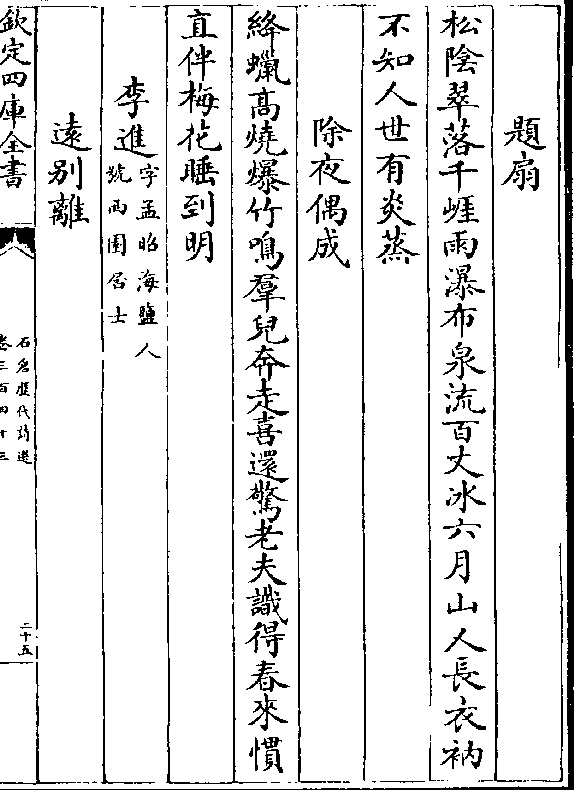 題扇
松陰翠落千崕雨瀑布泉流百丈冰六月山人長衣衲
不知人世有炎蒸
除夜偶成
絳蠟高燒爆竹鳴羣兒奔走喜還驚老夫識得春來慣
直伴梅花睡到明
李進字孟昭海鹽人
號雨圍居士
遠别離
欽定四庫全書
石倉歷代詩選
卷三百四十三
二十五